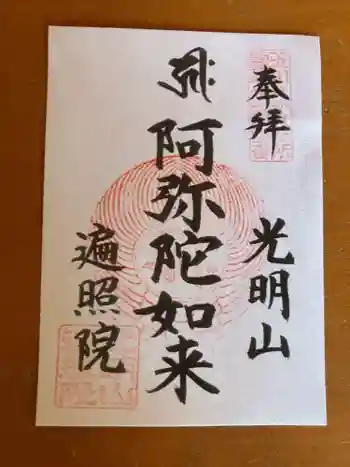 奉拝
光明山
阿弥陀如来
遍照院